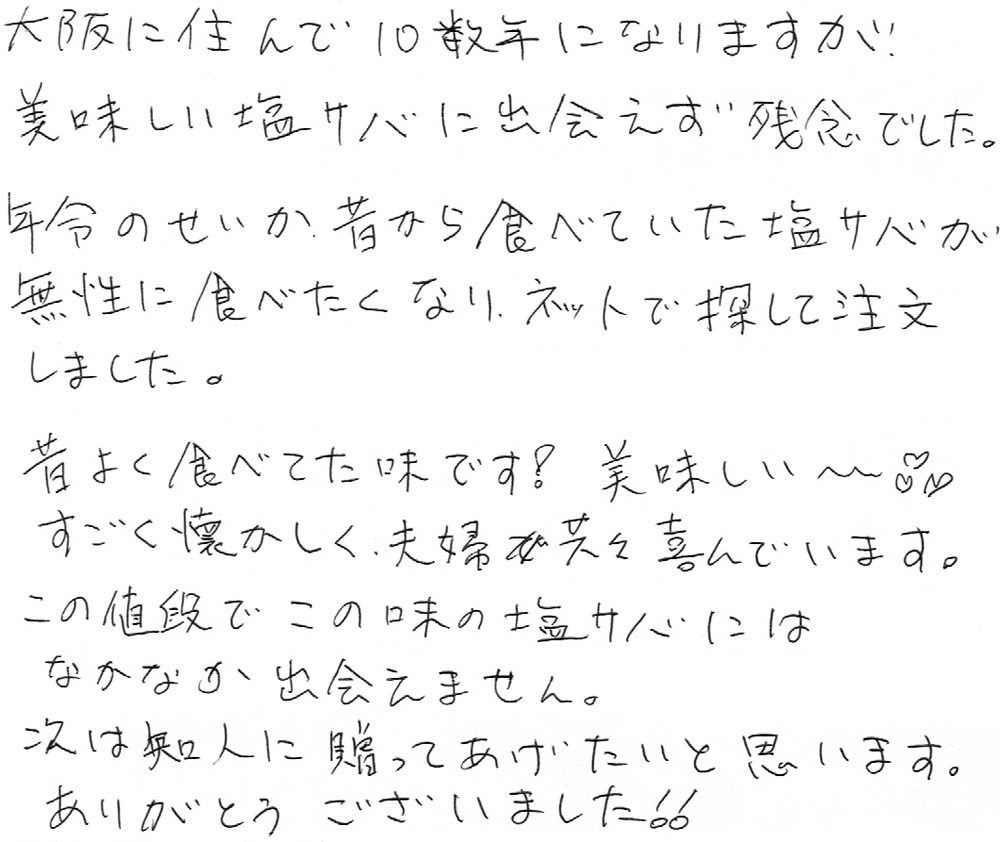 大阪に住んで10数年になりますが、
美味しい塩サバに出会えず残念でした。
年令のせいか、昔から食べていた塩サバが
無性に食べたくなり、ネットで探して注文
しました。
昔よく食べてた味です！ 美味しい〜〜♡♡♡
すごく懐かしく、夫婦共々喜んでいます。
この値段でこの味の塩サバには
なかなか出会えません。
次は知人に贈ってあげたいと思います。
ありがとうございました!!